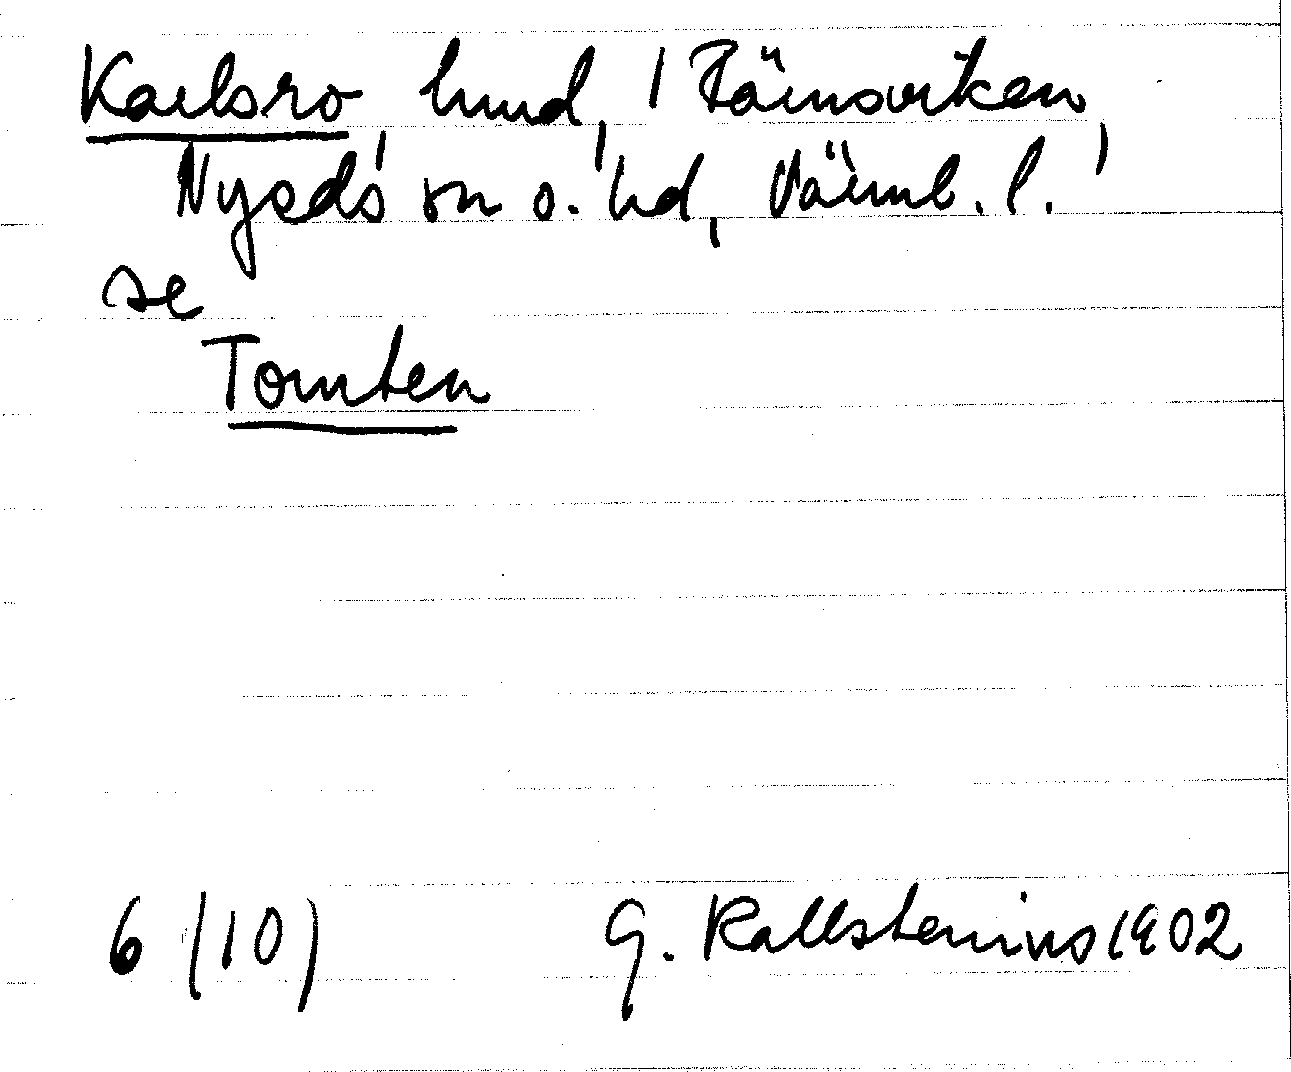 Karlsro, hmd, 1 Rämsviken,
Nyeds sn o. hd, Värml. l.
se
Tomten
6 (10) G. Kallstenius 1902